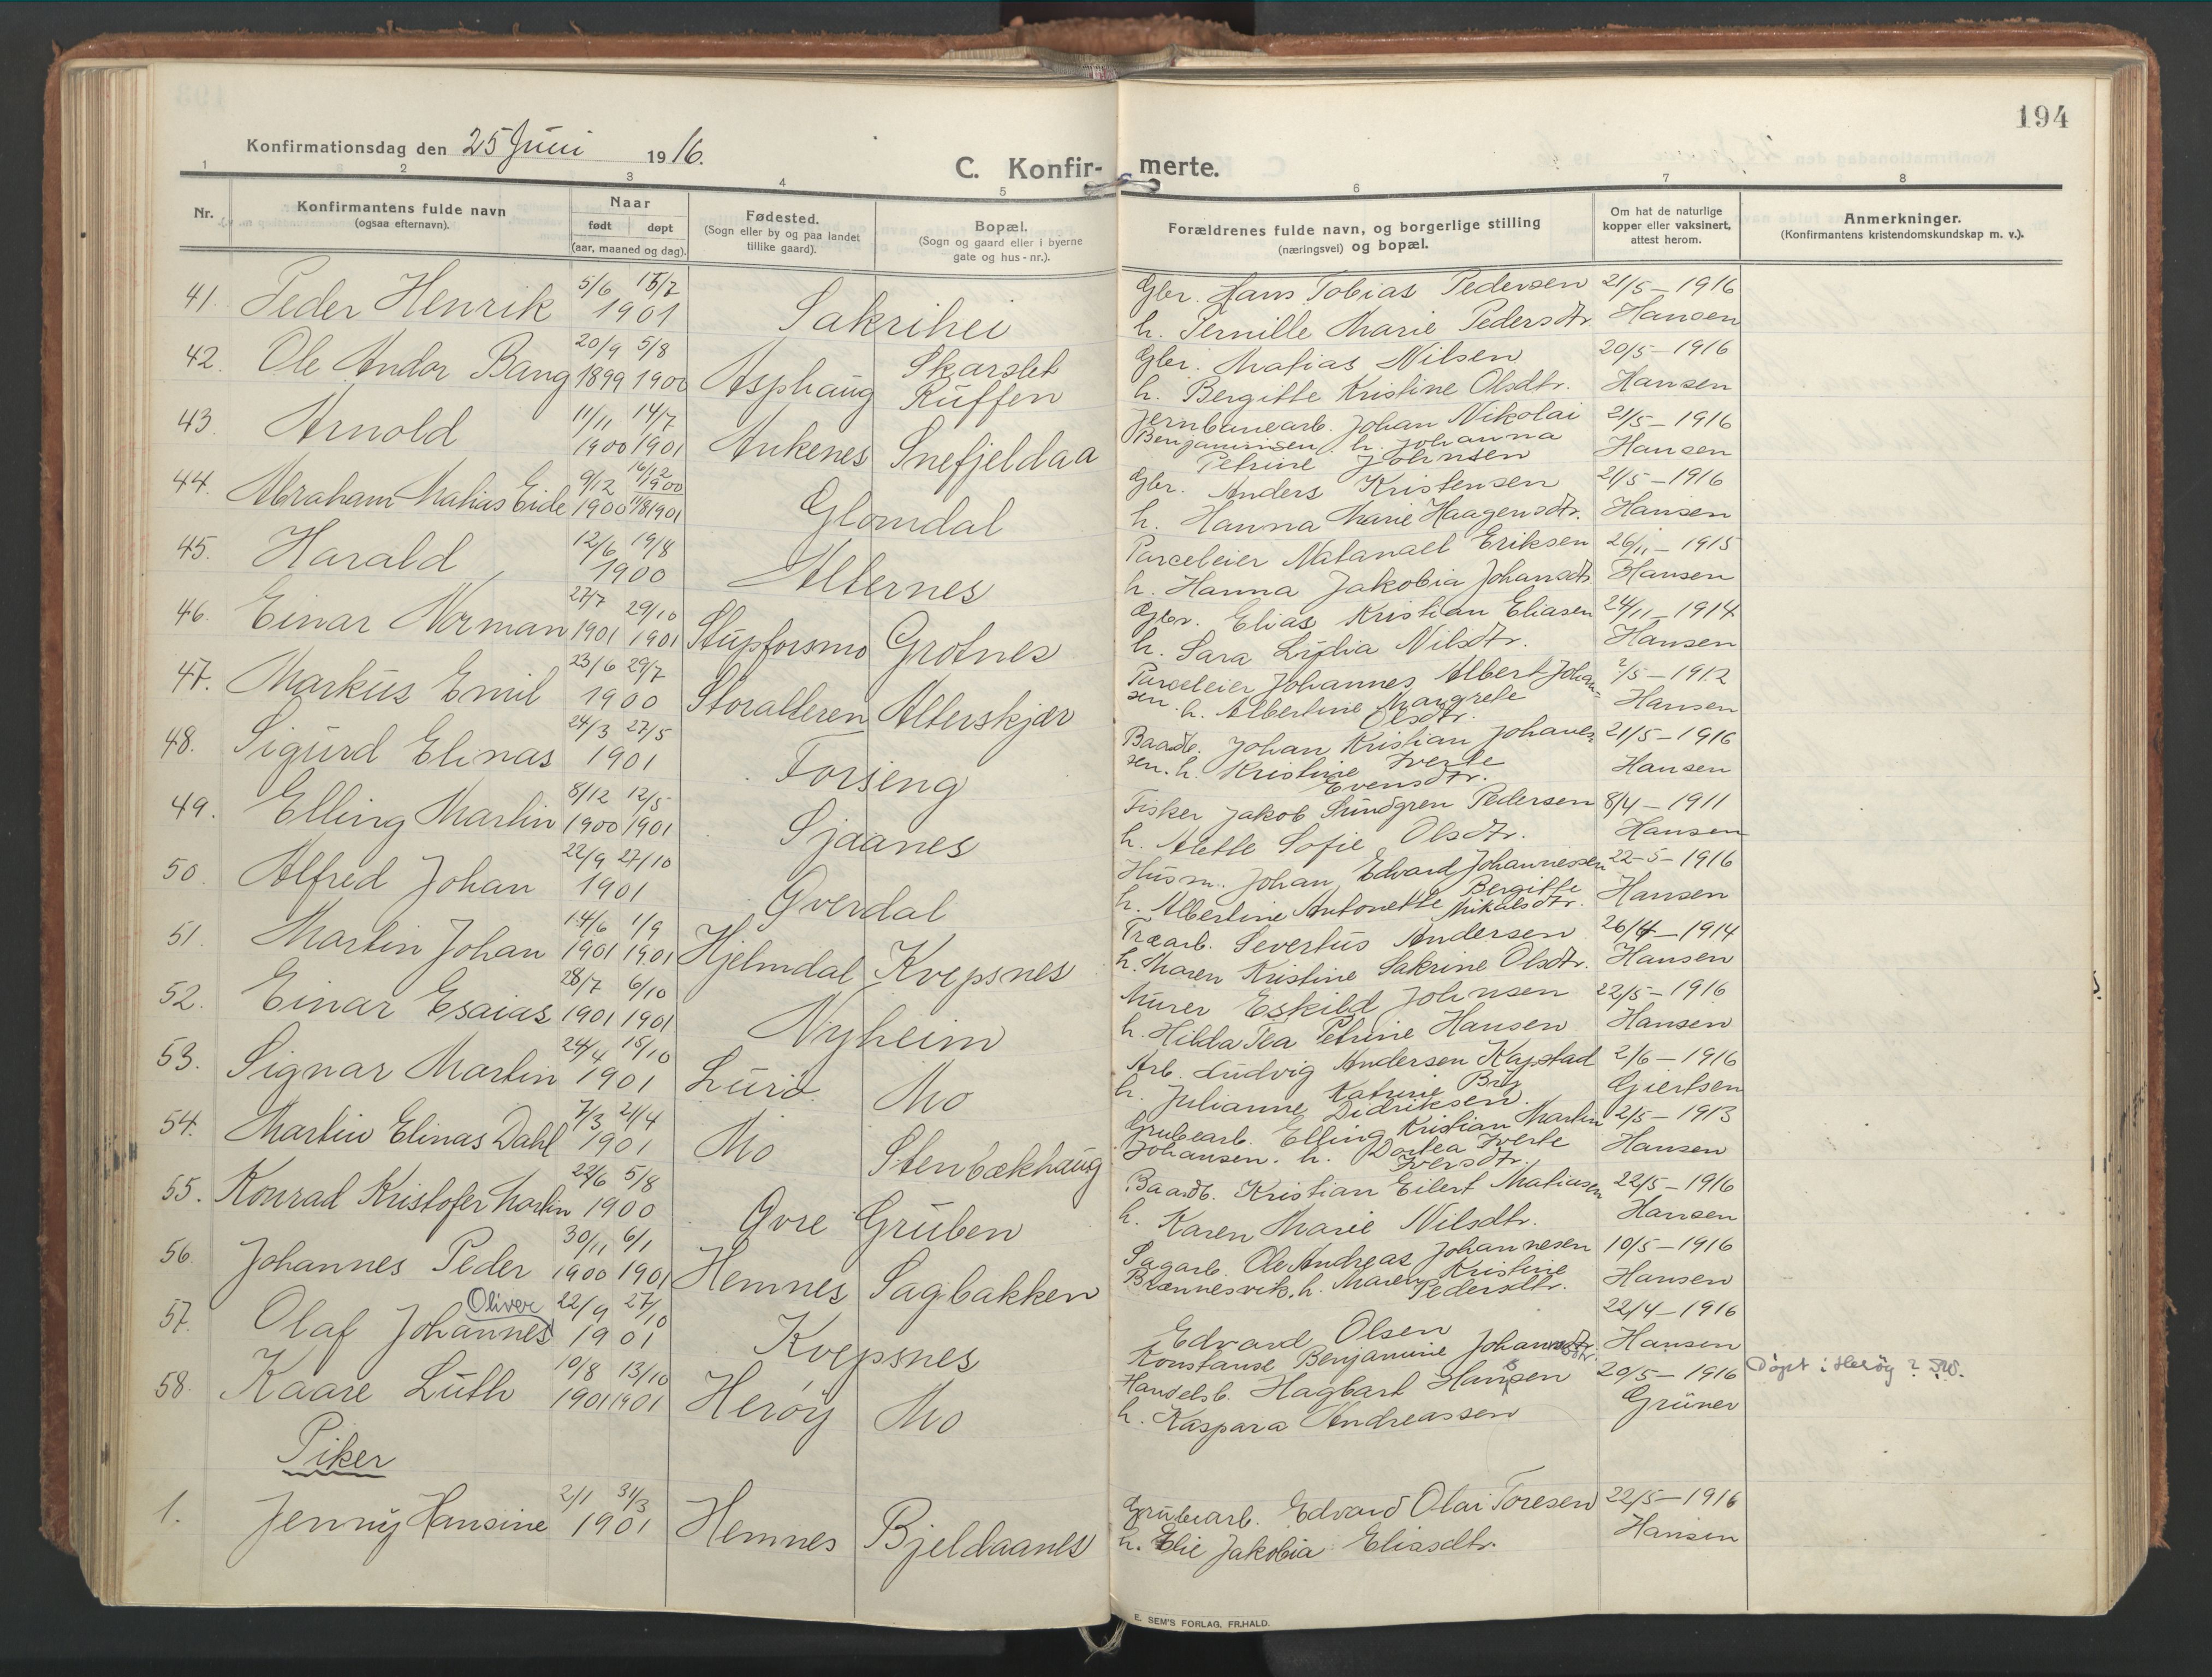 194
Konfirmationsdag den 25 Juni 1916.
C. Konfirmerte.
1 2 3 4 5 6 7 8
Nr.
Konfirmantens fulde navn
(ogsaa efternavn).
Naar
født døpt
(aar, maaned og dag).
Fødested.
(Sogn eller by og paa landet
tillike gaard).
Bopæl.
(Sogn og gaard eller i byerne
gate og hus-nr.).
Forældrenes fulde navn, og borgerlige stilling
(næringsvei) og bopæl.
Om hat de naturlige
kopper eller vaksinert,
attest herom.
Anmerkninger.
(Konfirmantens kristendomskundskap m. v.).
41. Peder Henrik 5/6 15/7 1901 Sakrihei Gbr. Hans Tobias Pedersen 21/5 – 1916
h. Pernille Marie Pedersdtr. Hansen
42. Ole Andor Bang 20/9 1899 5/8 1900 Asphaug Skarslet Ruffen Gbr. Matias Nilsen 20/5 – 1916
h. Bergitte Kristine Olsdtr. Hansen
43. Arnold 11/11 1900 14/7 1901 Ankenes Snefjeldaa Jernbanearb. Johan Nikolai 21/5 – 1916
Benjaminsen h. Johanna Hansen
Petrine Johnsen
44. Abraham Matias Eide 9/12 1900 16/12 1900 11/8 1901 Glomdal Gbr. Anders Kristensen 21/5 – 1916
h. Hanna Marie Haagensdtr. Hansen
45. Harald 12/6 19/8 1900 Alternes Parceleier Natanael Eriksen 26/11 – 1915
h. Hanna Jakobia Johansdtr. Hansen
46. Einar Norman 27/7 1901 29/10 1901 Stupforsmo Grotnes Gbr. Elias Kristian Eliasen 24/11 – 1914
h. Sara Lydia Nilsdtr. Hansen
47. Markus Emil 23/6 29/7 1900 Storalteren Alterskjær Parceleier Johannes Albert Johan= 2/5 – 1912
sen. h. Albertine Margrete Hansen
Olsdtr.
48. Sigurd Elinas 24/3 27/5 1901 Forseng Baadb. Johan Kristian Johane= 21/5 – 1916
sen. h. Kristine Iverte Hansen
Evensdtr.
49. Elling Martin 8/12 1900 12/5 1901 Sjaanes Fisker Jakob Sundgren Pedersen 8/4 – 1911
h. Alette Sofie Olsdtr. Hansen
50. Alfred Johan 22/9 27/10 1901 Øverdal Husm. Johan Edvard Johannessen 22-5-1916
h. Albertine Antonette Bergitte Hansen
Mikalsdtr.
51. Martin Johan 14/6 1901 1/9 1901 Hjelmdal Kvepsnes Træarb. Severtus Andersen 26/4 – 1914
h. Maren Kristine Sakrine Olsdtr. Hansen
52. Einar Esaias 28/7 1901 6/10 1901 Nyheim Murer Eskild Johnsen 22/5 – 1916
h. Hilda Tea Petrine Hansen Hansen
53. Signar Martin 24/4 15/10 1901 Lurø Mo Arb. Ludvig Andersen Kapstad 2/6 – 1916
h. Julianne Katrine Giertsen
Didriksen.
54. Martin Elinas Dahl 7/3 21/4 1901 Mo Stenbækhaug Grubearb. Elling Kristian Martin 2/5 – 1913
Johansen. h. Dortea Iverte Hansen
Iversdtr.
55. Konrad Kristofer Martin 22/6 5/8 1900 Øvre Gruben Baadb. Kristian Eilert Matiasen 22/5 – 1916
h. Karen Marie Nilsdtr. Hansen
56. Johannes Peder 30/11 1900 6/1 1901 Hemnes Sagbakken Sagarb. Ole Andreas Johannesen 10/5 – 1916
Brænnesvik. h. Maren Kristine Hansen
Pedersdtr.
57. Olaf Johannes Oliver 22/9 27/10 1901 Kvepsnes Edvard Olsen 22/4 – 1916
Konstanse Benjamine Johannesdtr. Hansen
58. Kaare Luth 10/8 1901 13/10 1901 Herøy Mo Handelsb. Hagbart Hansen 20/5 – 1916 Døpt i Herøy?
h. Kaspara Andreassen Grüner
Piker
1. Jenny Hansine 2/1 31/3 1901 Hemnes Bjeldaanes Grubearb. Edvard Olai Toresen 22/5 – 1916
h. Elie Jakobia Eliasdtr. Hansen
E. SEM'S FORLAG, FR.HALD.